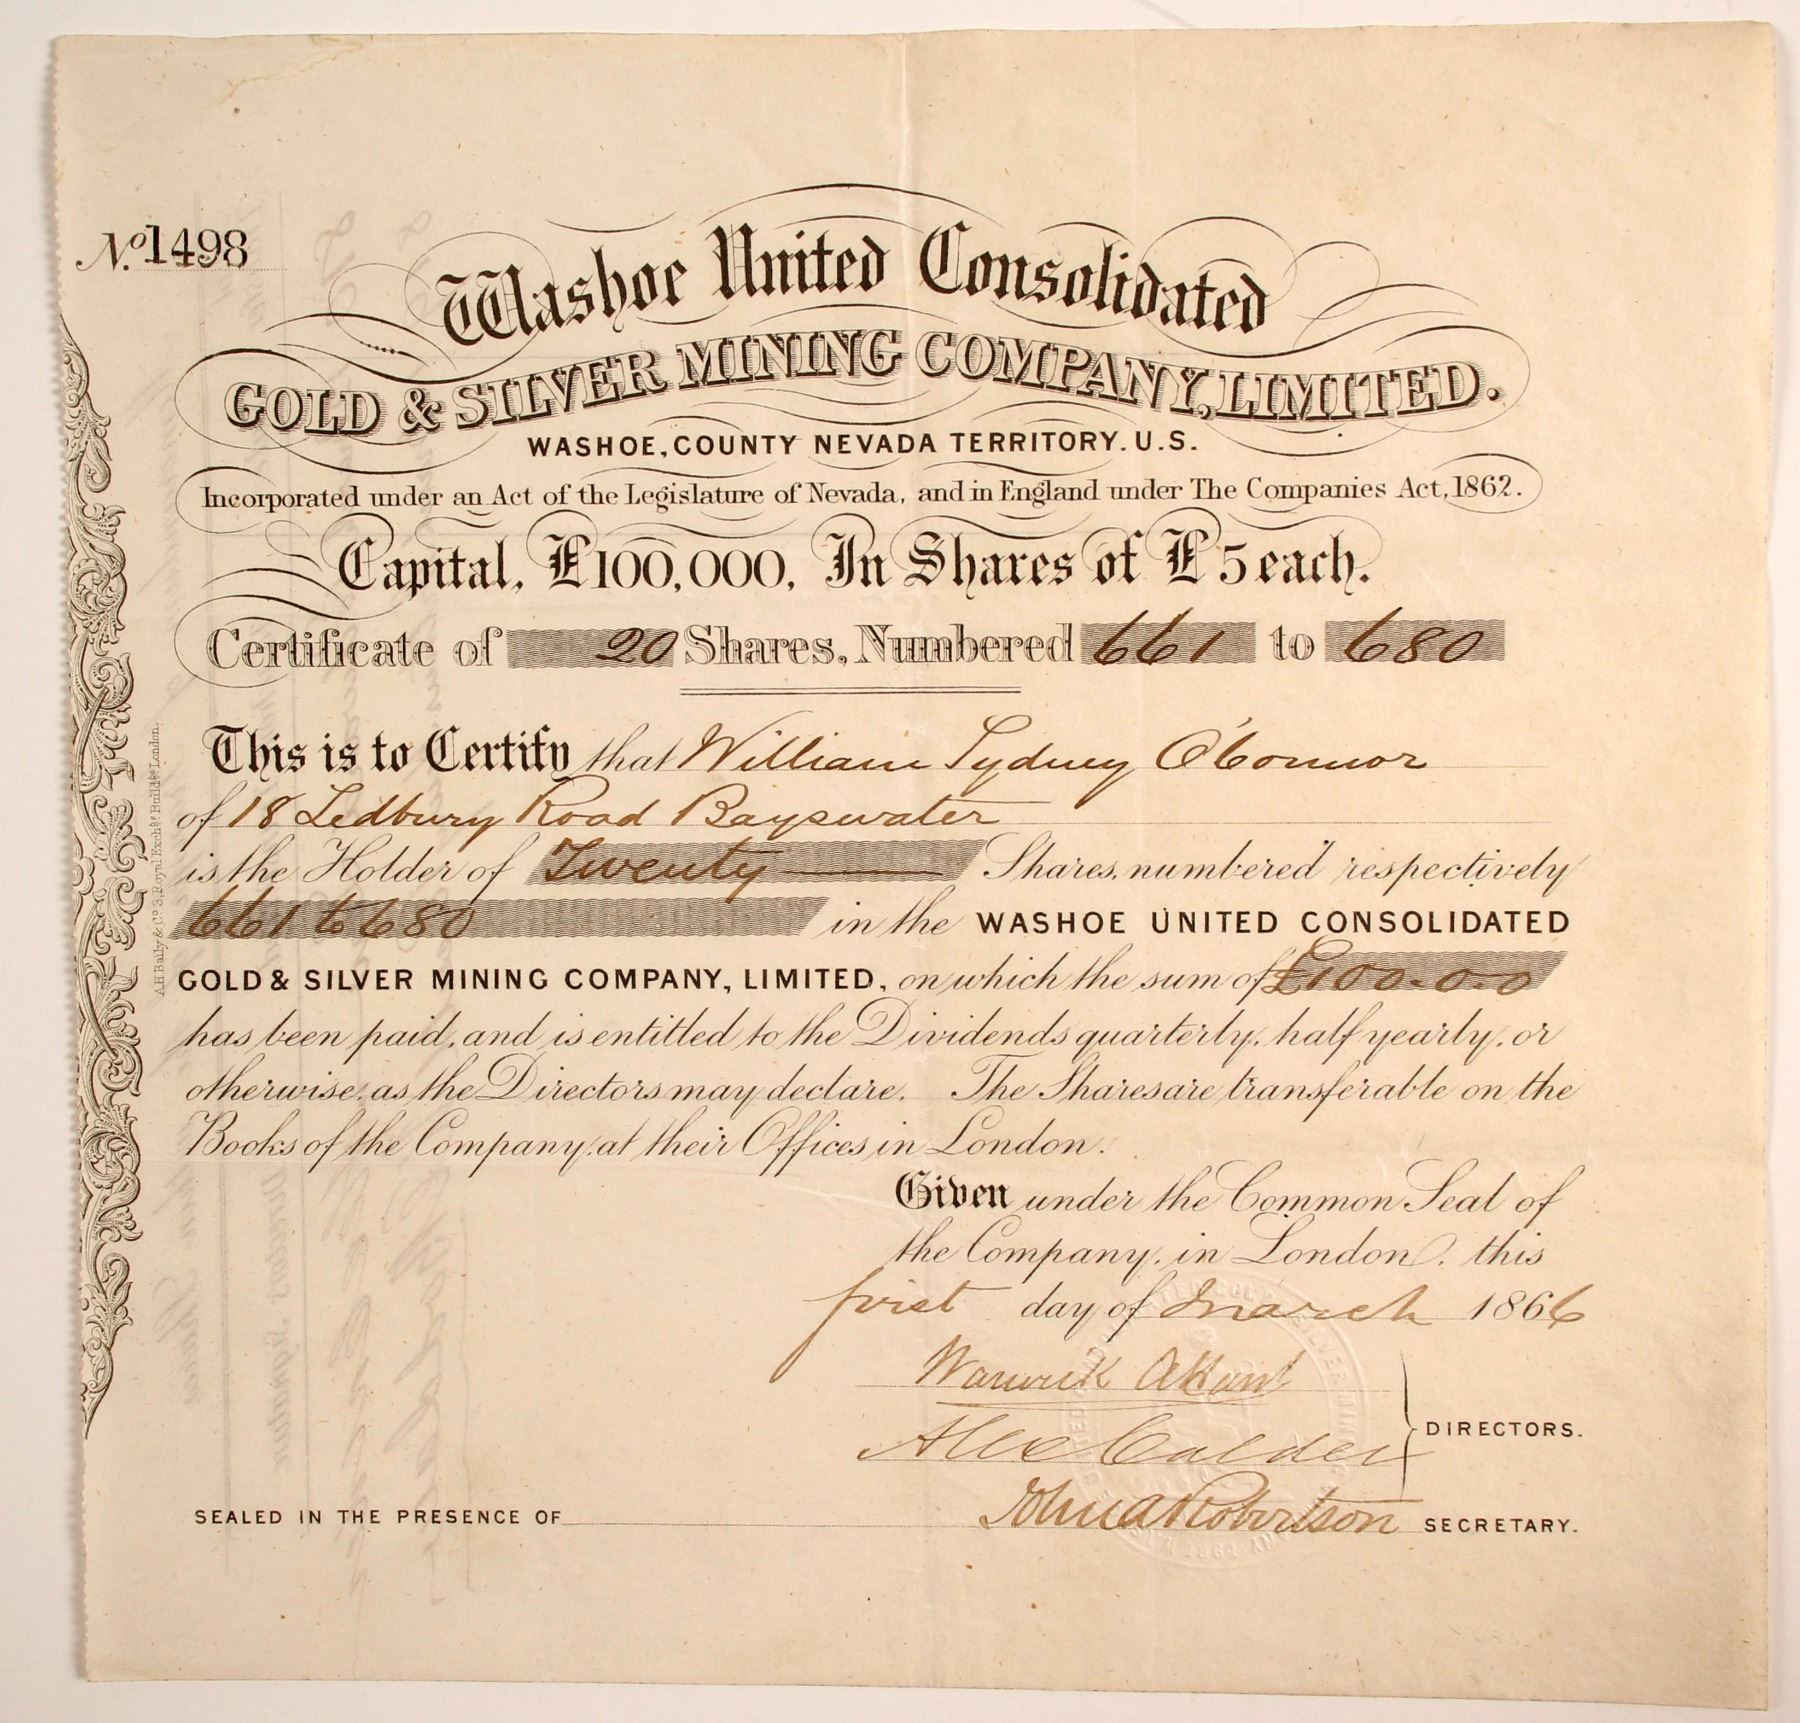 No. 1498
Washoe United Consolidated
GOLD & SILVER MINING COMPANY, LIMITED.
WASHOE, COUNTY NEVADA TERRITORY. U.S.
Incorporated under an Act of the Legislature of Nevada, and in England under The Companies Act, 1862.
Capital, £100,000, In Shares of £5 each.
Certificate of 20 Shares, Numbered 661 to 680
This is to Certify that William Sydney O'Connor
of 18 Ledbury Road Bayswater
is the Holder of Twenty Shares, numbered respectively
661 to 680 in the WASHOE UNITED CONSOLIDATED
GOLD & SILVER MINING COMPANY, LIMITED, on which the sum of £100.0.0
has been paid, and is entitled to the Dividends quarterly, half yearly, or
otherwise, as the Directors may declare. The Shares are transferable on the
Books of the Company, at their Offices in London.
Given under the Common Seal of
the Company, in London, this
first day of March 1866
Warwick
Alex Calder
DIRECTORS.
John A Robertson SECRETARY.
SEALED IN THE PRESENCE OF
A.H. Baily & Co. 3, Royal Exchge. Buildgs. London.